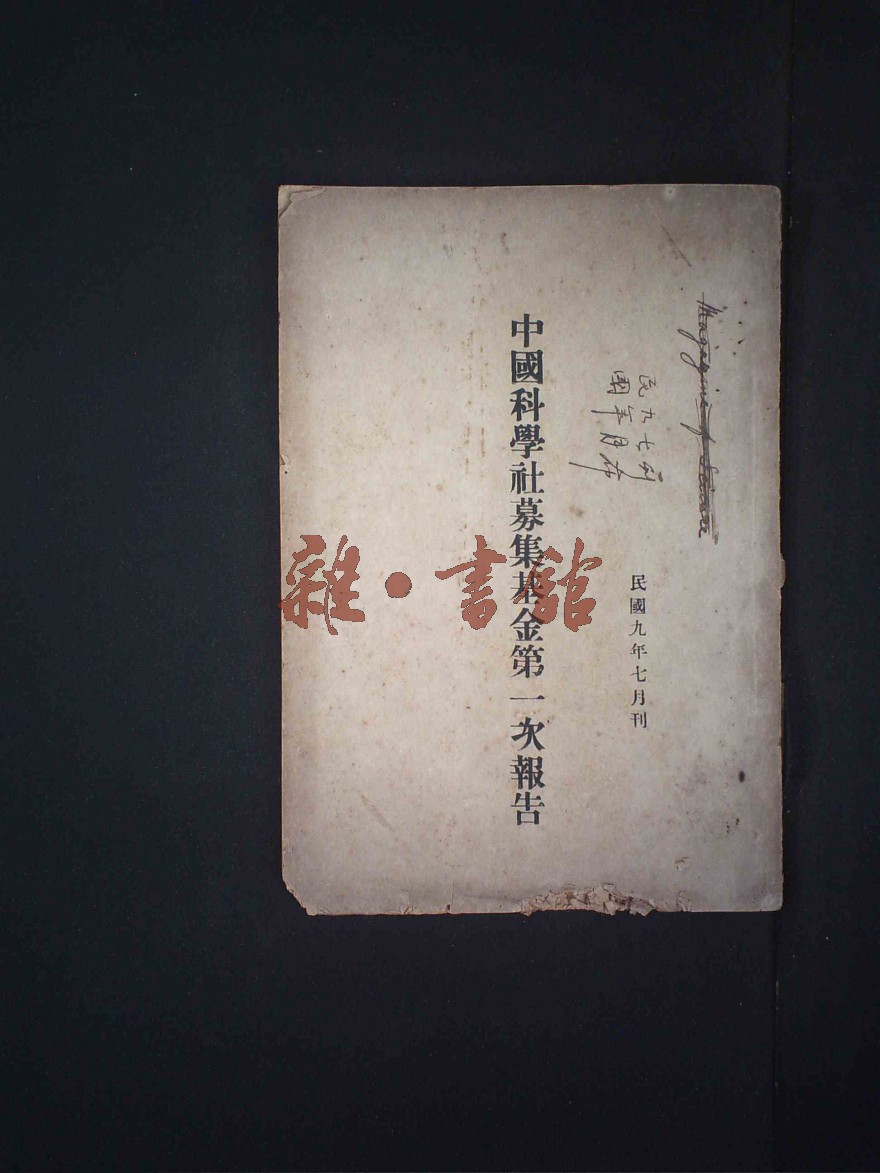 Magazine of Science
民國九年七月刊
民九七刊
國年月
中國科學社募集基金第一次報告
雜·書館